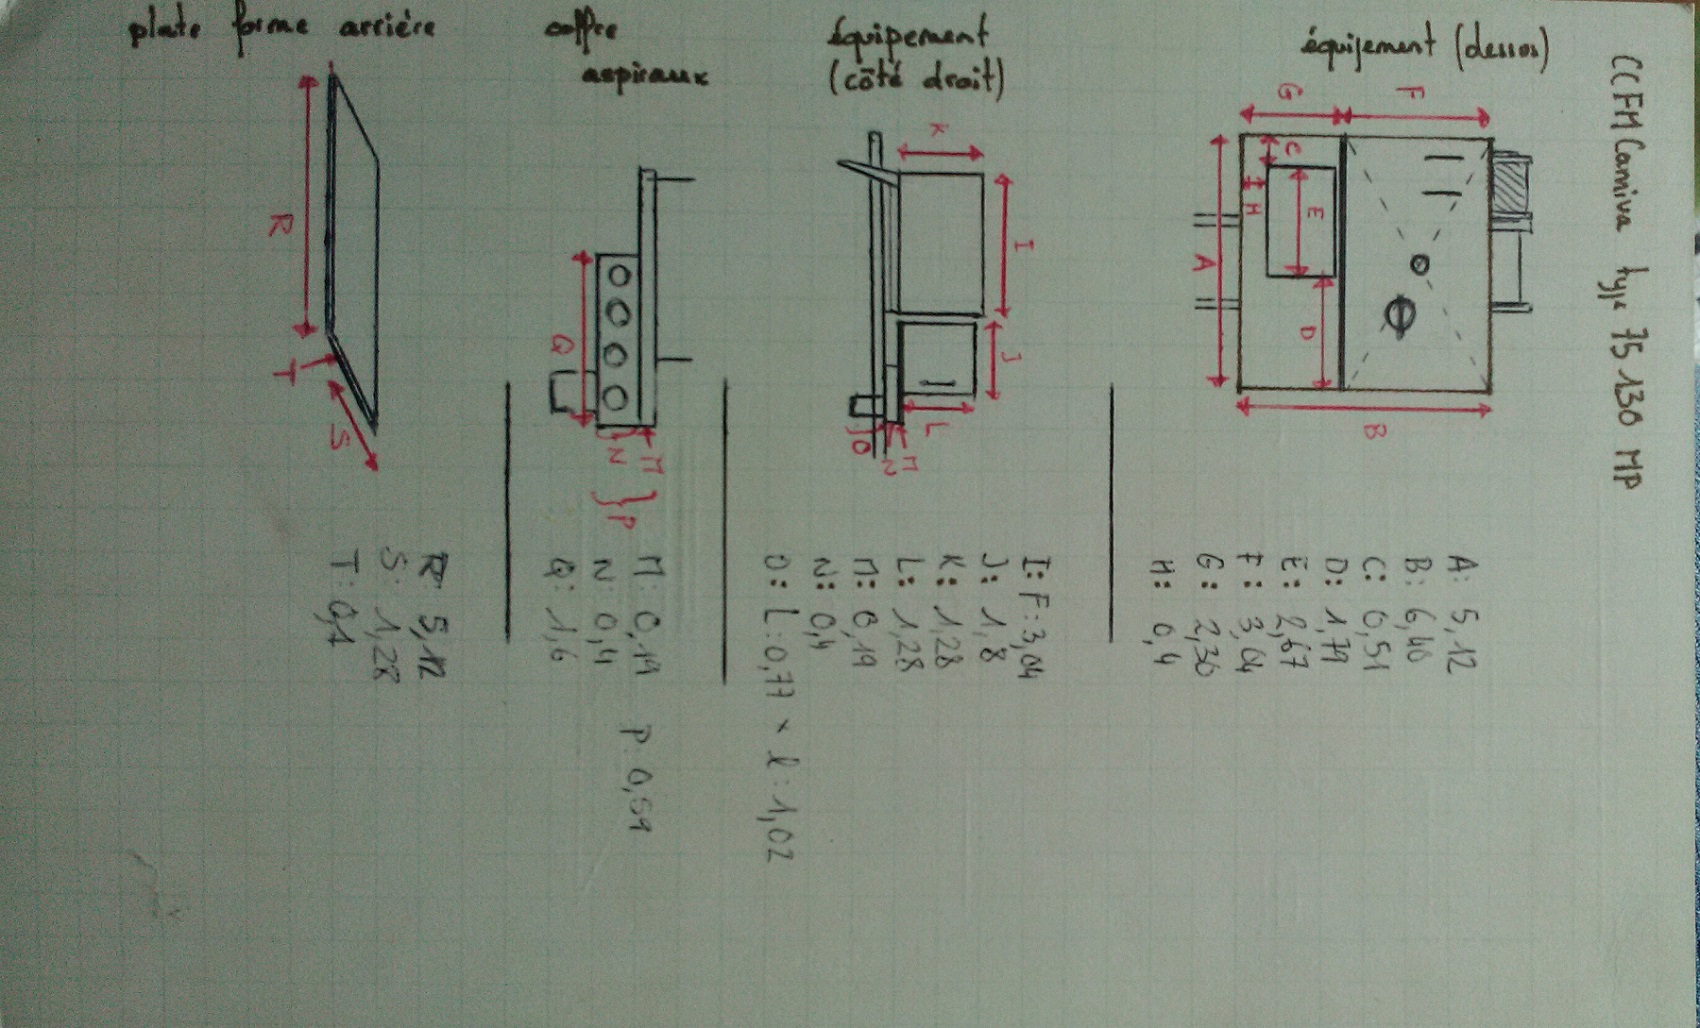 CCFM Camiva type 75 130 MP
équipement (dessus)
F
G
C
E
H
A
D
B
A: 5,12
B: 6,40
C: 0,51
D: 1,79
E: 2,67
F: 3,04
G: 2,30
H: 0,4
équipement
(côté droit)
K
I
J
L
M
N
O
I: F: 3,04
J: 1,8
K: 1,28
L: 1,28
M: 0,19
N: 0,4
O: L: 0,77 x l: 1,02
coffre
aspiraux
Q
M
N
} P
M: 0,19 P: 0,59
N: 0,4
Q: 1,6
plate forme arrière
R
T
S
R: 5,12
S: 1,28
T: 0,1